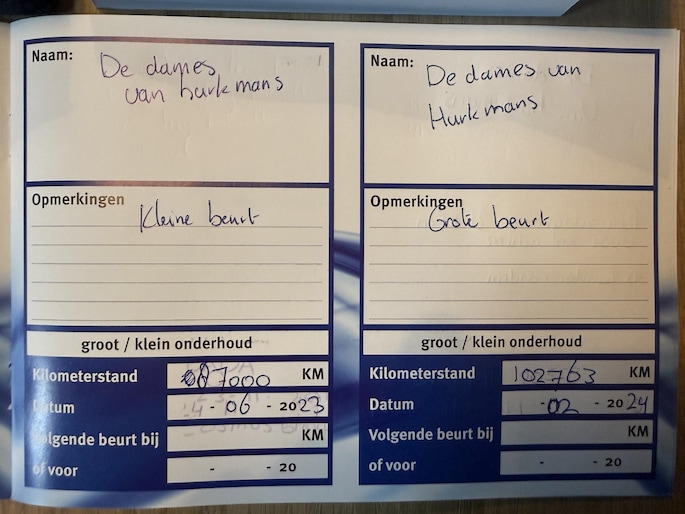 Naam: De dames
van hurkmans
Opmerkingen
Kleine beurt
groot / klein onderhoud
Kilometerstand 087000 KM
Datum - 06 - 2023
Volgende beurt bij KM
of voor - - 20
Naam: De dames van
Hurkmans
Opmerkingen
Grote beurt
groot / klein onderhoud
Kilometerstand 102763 KM
Datum - 02 - 2024
Volgende beurt bij KM
of voor - - 20